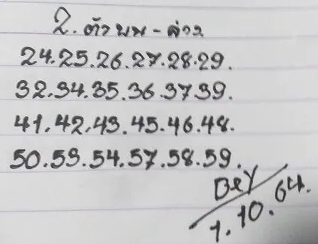 2. ตัวบน - ล่าง
24.25.26.27.28.29.
32.34.35.36.37.39.
41.42.43.45.46.48.
50.53.54.57.58.59.
Bey
1.10.64.